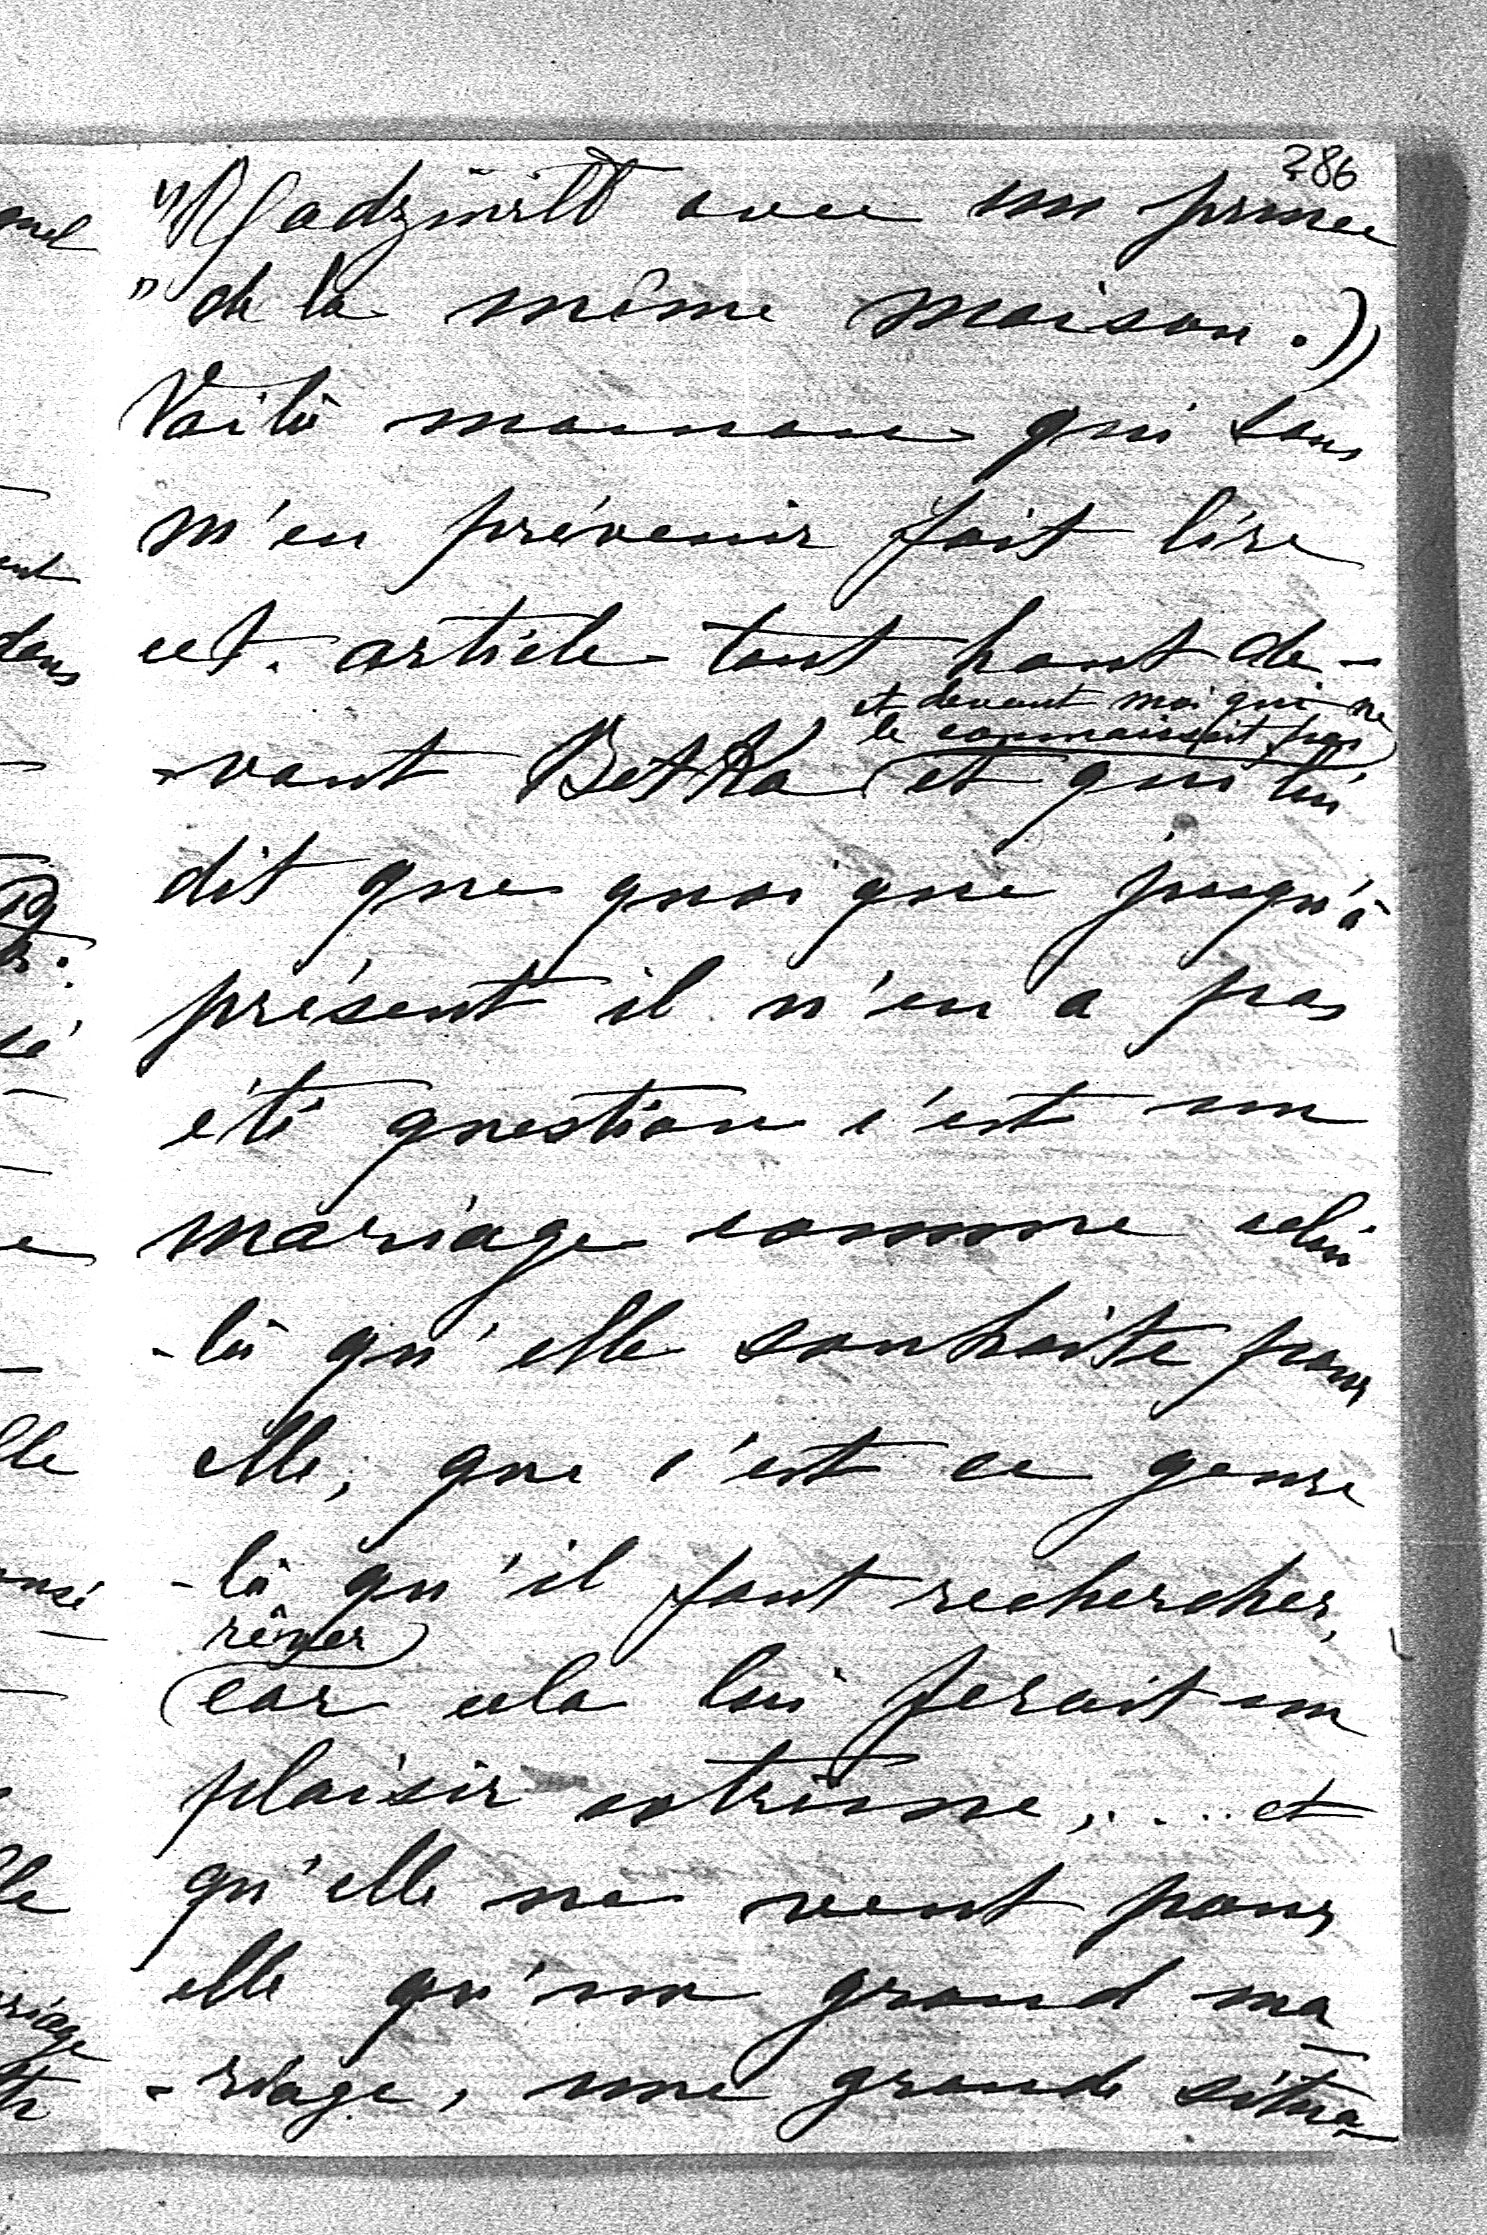 286
" Radziwill avec un prince
" de la même maison.))
Voilà maman qui sans
m'en prévenir fait lire
cet article tout haut de-
et devant moi qui ne
le connaissait pas
-vant Betka et qui lui
dit que quoique jusqu'à
présent il n'en a pas
été question c'est un
mariage comme celui
-là qu'elle souhaite pour
elle, que c'est ce genre
-là qu'il faut rechercher,
rêver
car cela lui ferait un
plaisir extrême, ... et
qu'elle ne veut pour
elle qu'un grand ma
-riage, une grande situa-